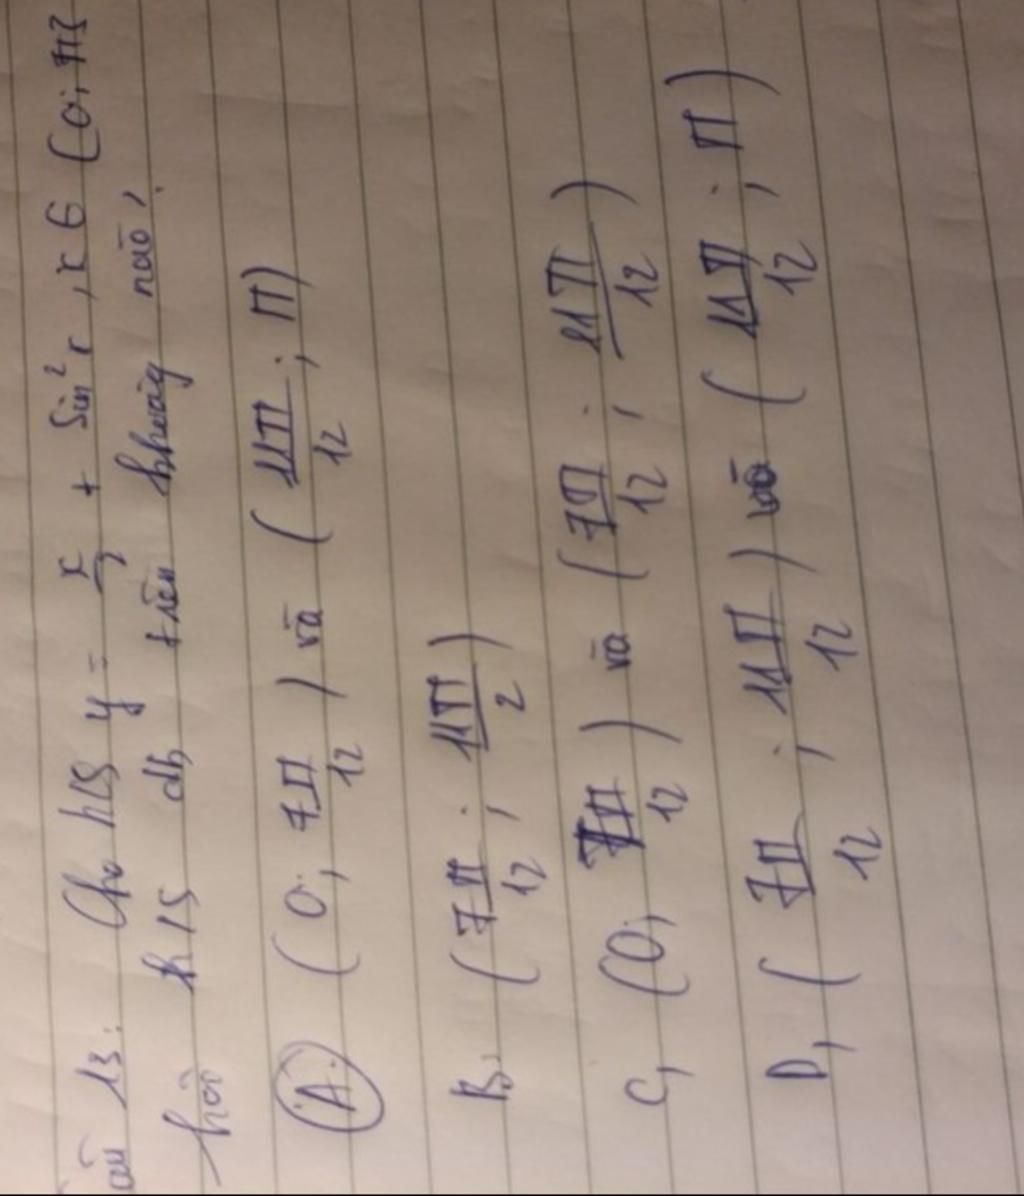 Câu 13: Cho h/s y = x/2 + sin²x, x ∈ [0; π]
hỏi h/s đb trên khoảng nào,
A. (0; 7π/12) và (11π/12; π)
B, (7π/12; 11π/2)
C, (0; 7π/12) và (7π/12; 11π/12)
D, (7π/12; 11π/12) và (11π/12; π)